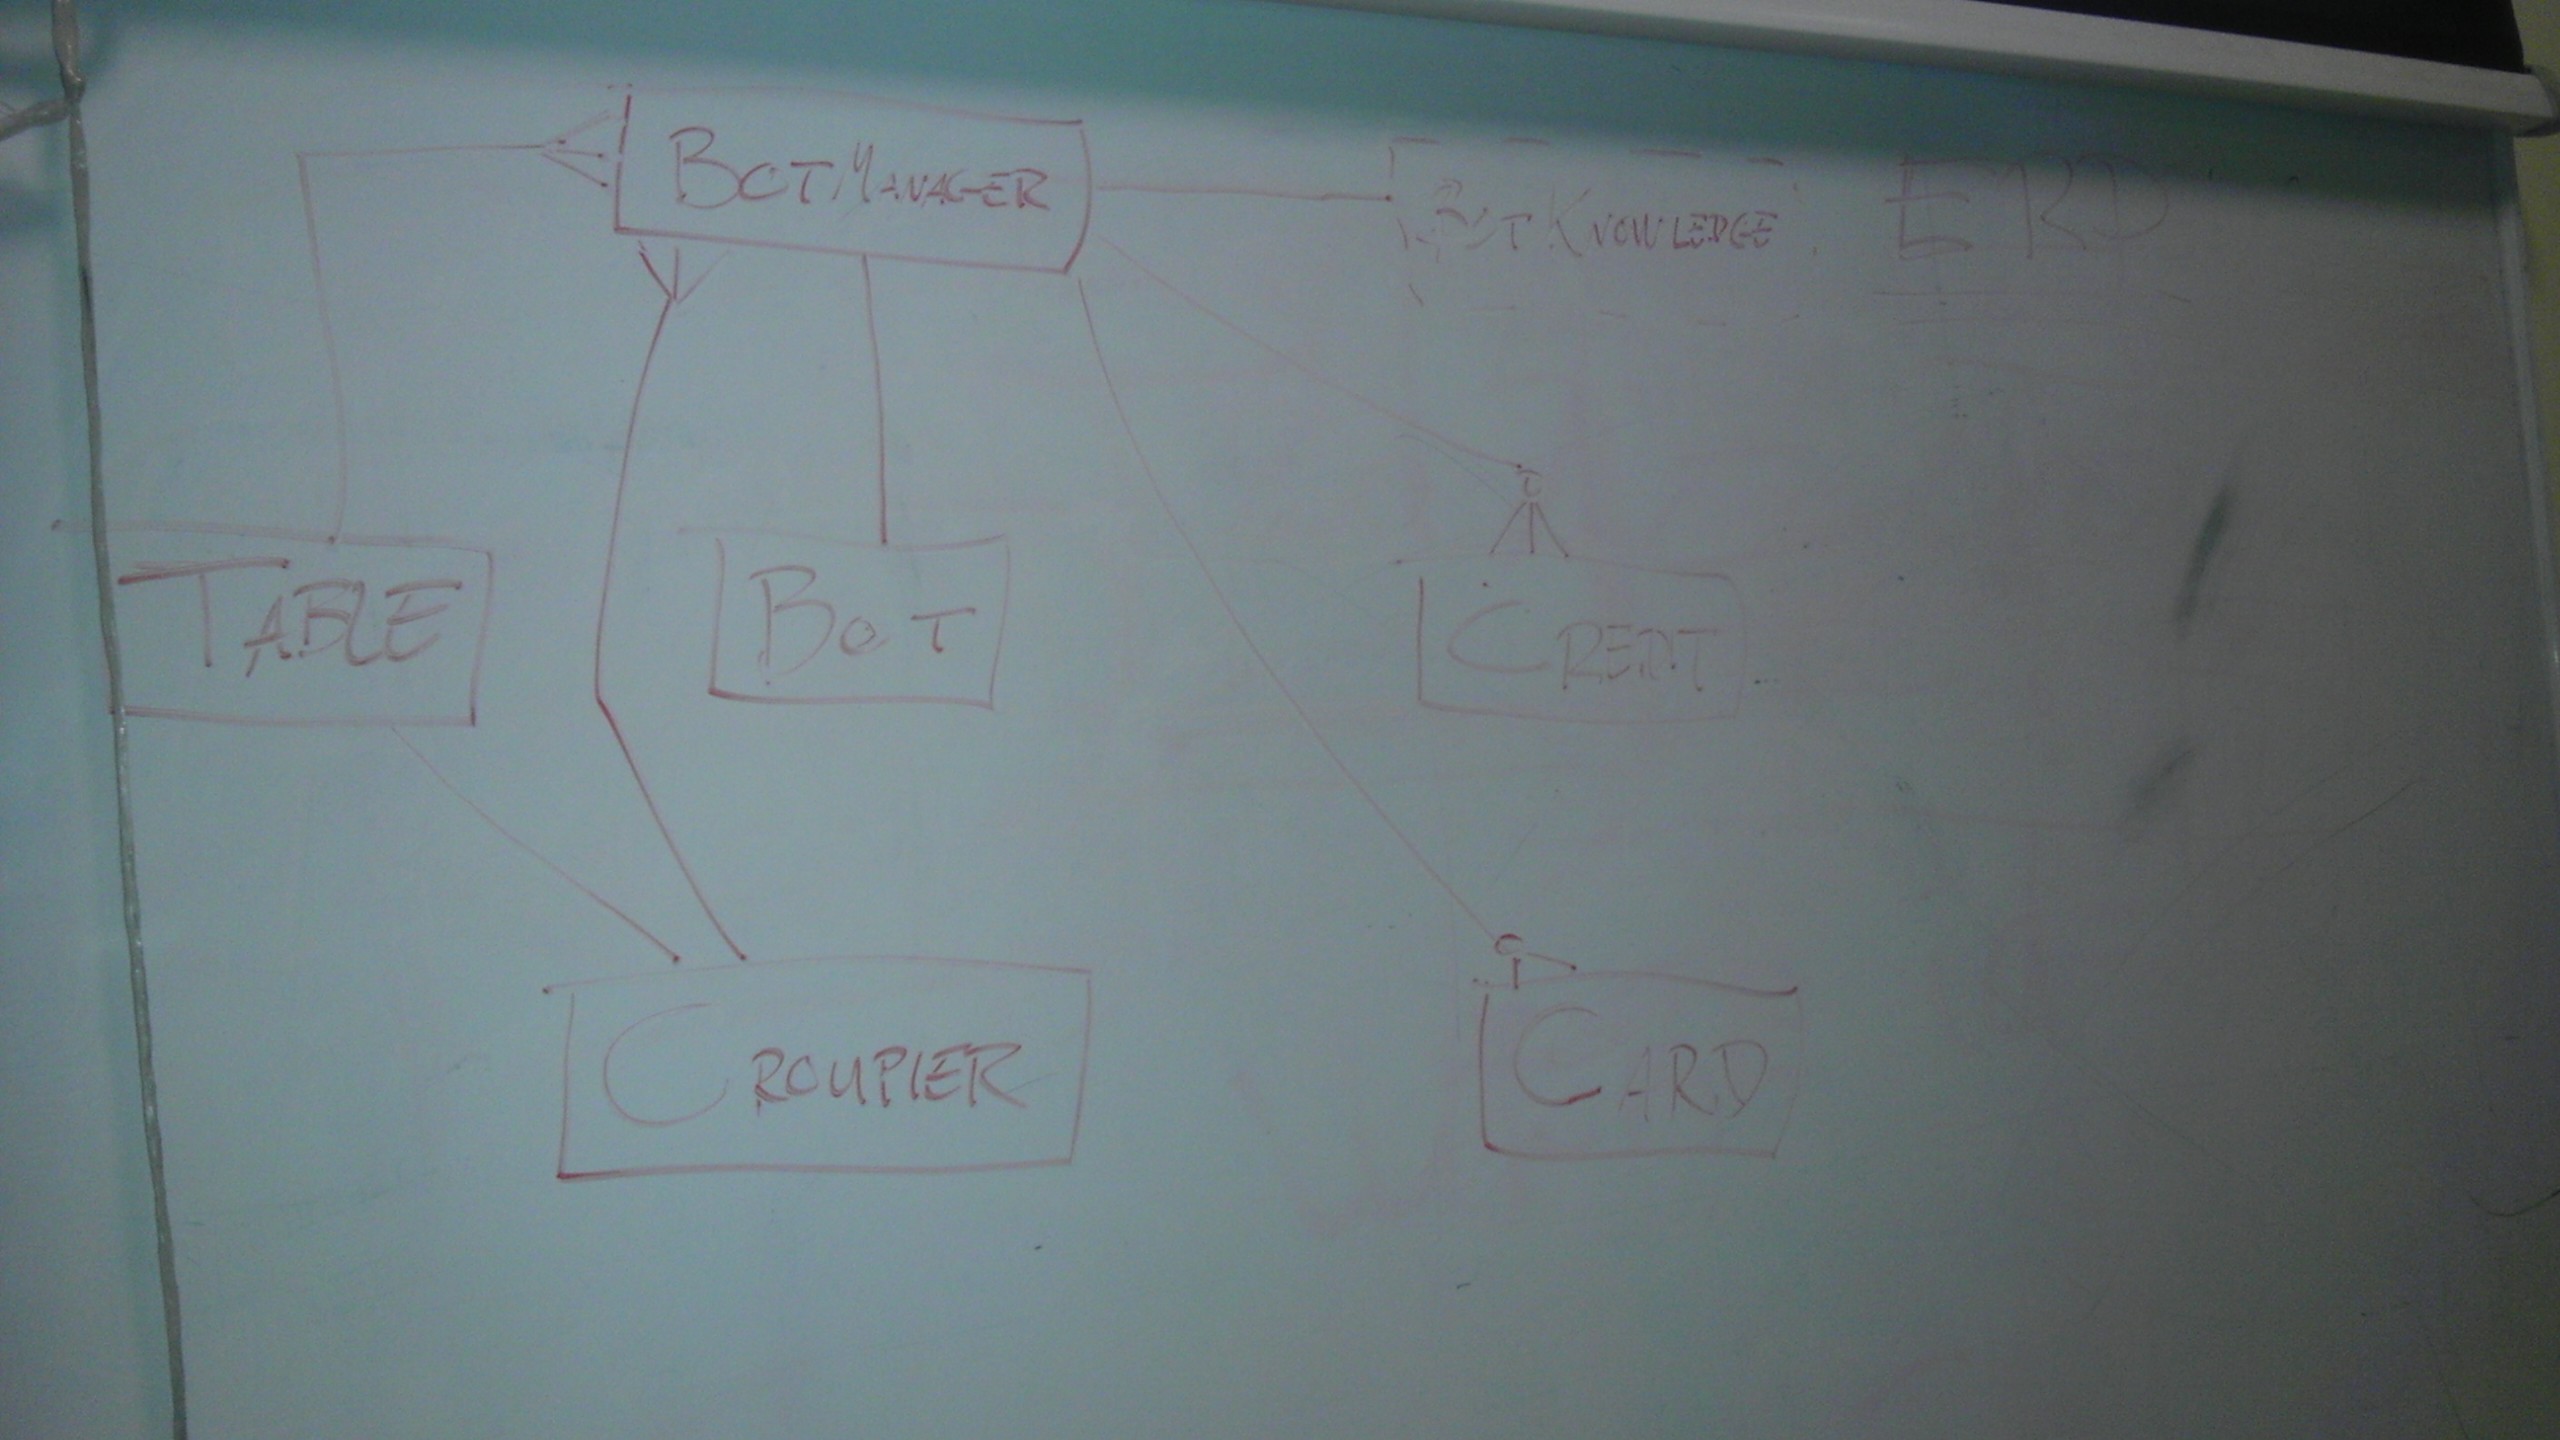 BotManager
BotKnowledge
ERD
Table
Bot
Credit
Croupier
Card